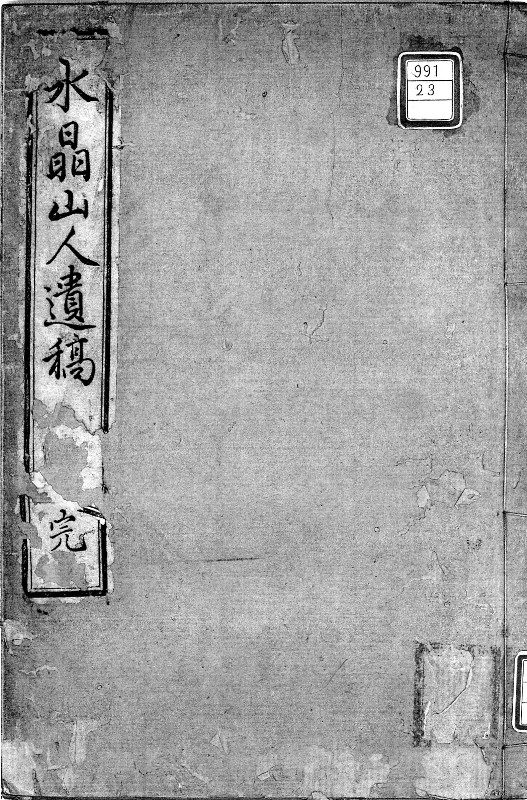 水晶山人遺稿
完
991
23